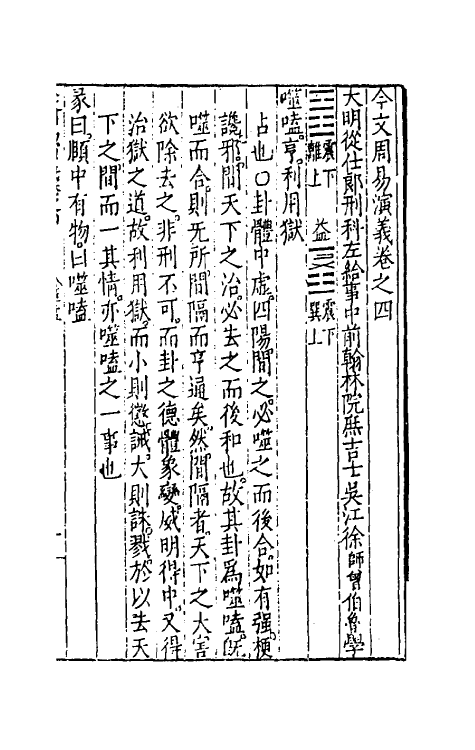 今文周易演義卷之四
大明從仕郎刑科左給事中前翰林院庶吉士吳江徐師曾伯魯學
震下離上 益 震下巽上
噬嗑亨利用獄
占也口卦體中虛四陽間之必噬之而後合如有强梗
讒邪間天下之治必去之而後和也故其卦爲噬嗑旣
噬而合則无所間隔而亨通矣然間隔者天下之大害
欲除去之非刑不可而卦之德體象變威明得中又得
治獄之道故利用獄而小則懲誡大則誅戮於以去天
下之間而一其情亦噬嗑之一事也
彖曰頤中有物曰噬嗑